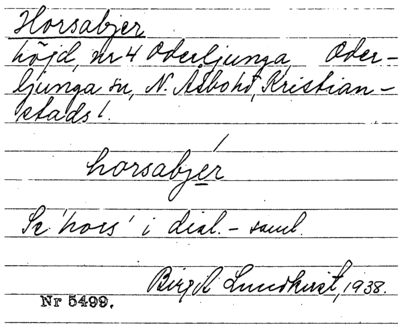 Horsabjer
höjd, nr 4 Oderljunga, Oder-
ljunga sn, N. Åsbo hd, Kristian-
stads l.
horsabjér
Se 'hors' i dial.-saml.
Birgit Lundkvist, 1938.
Nr 5499.